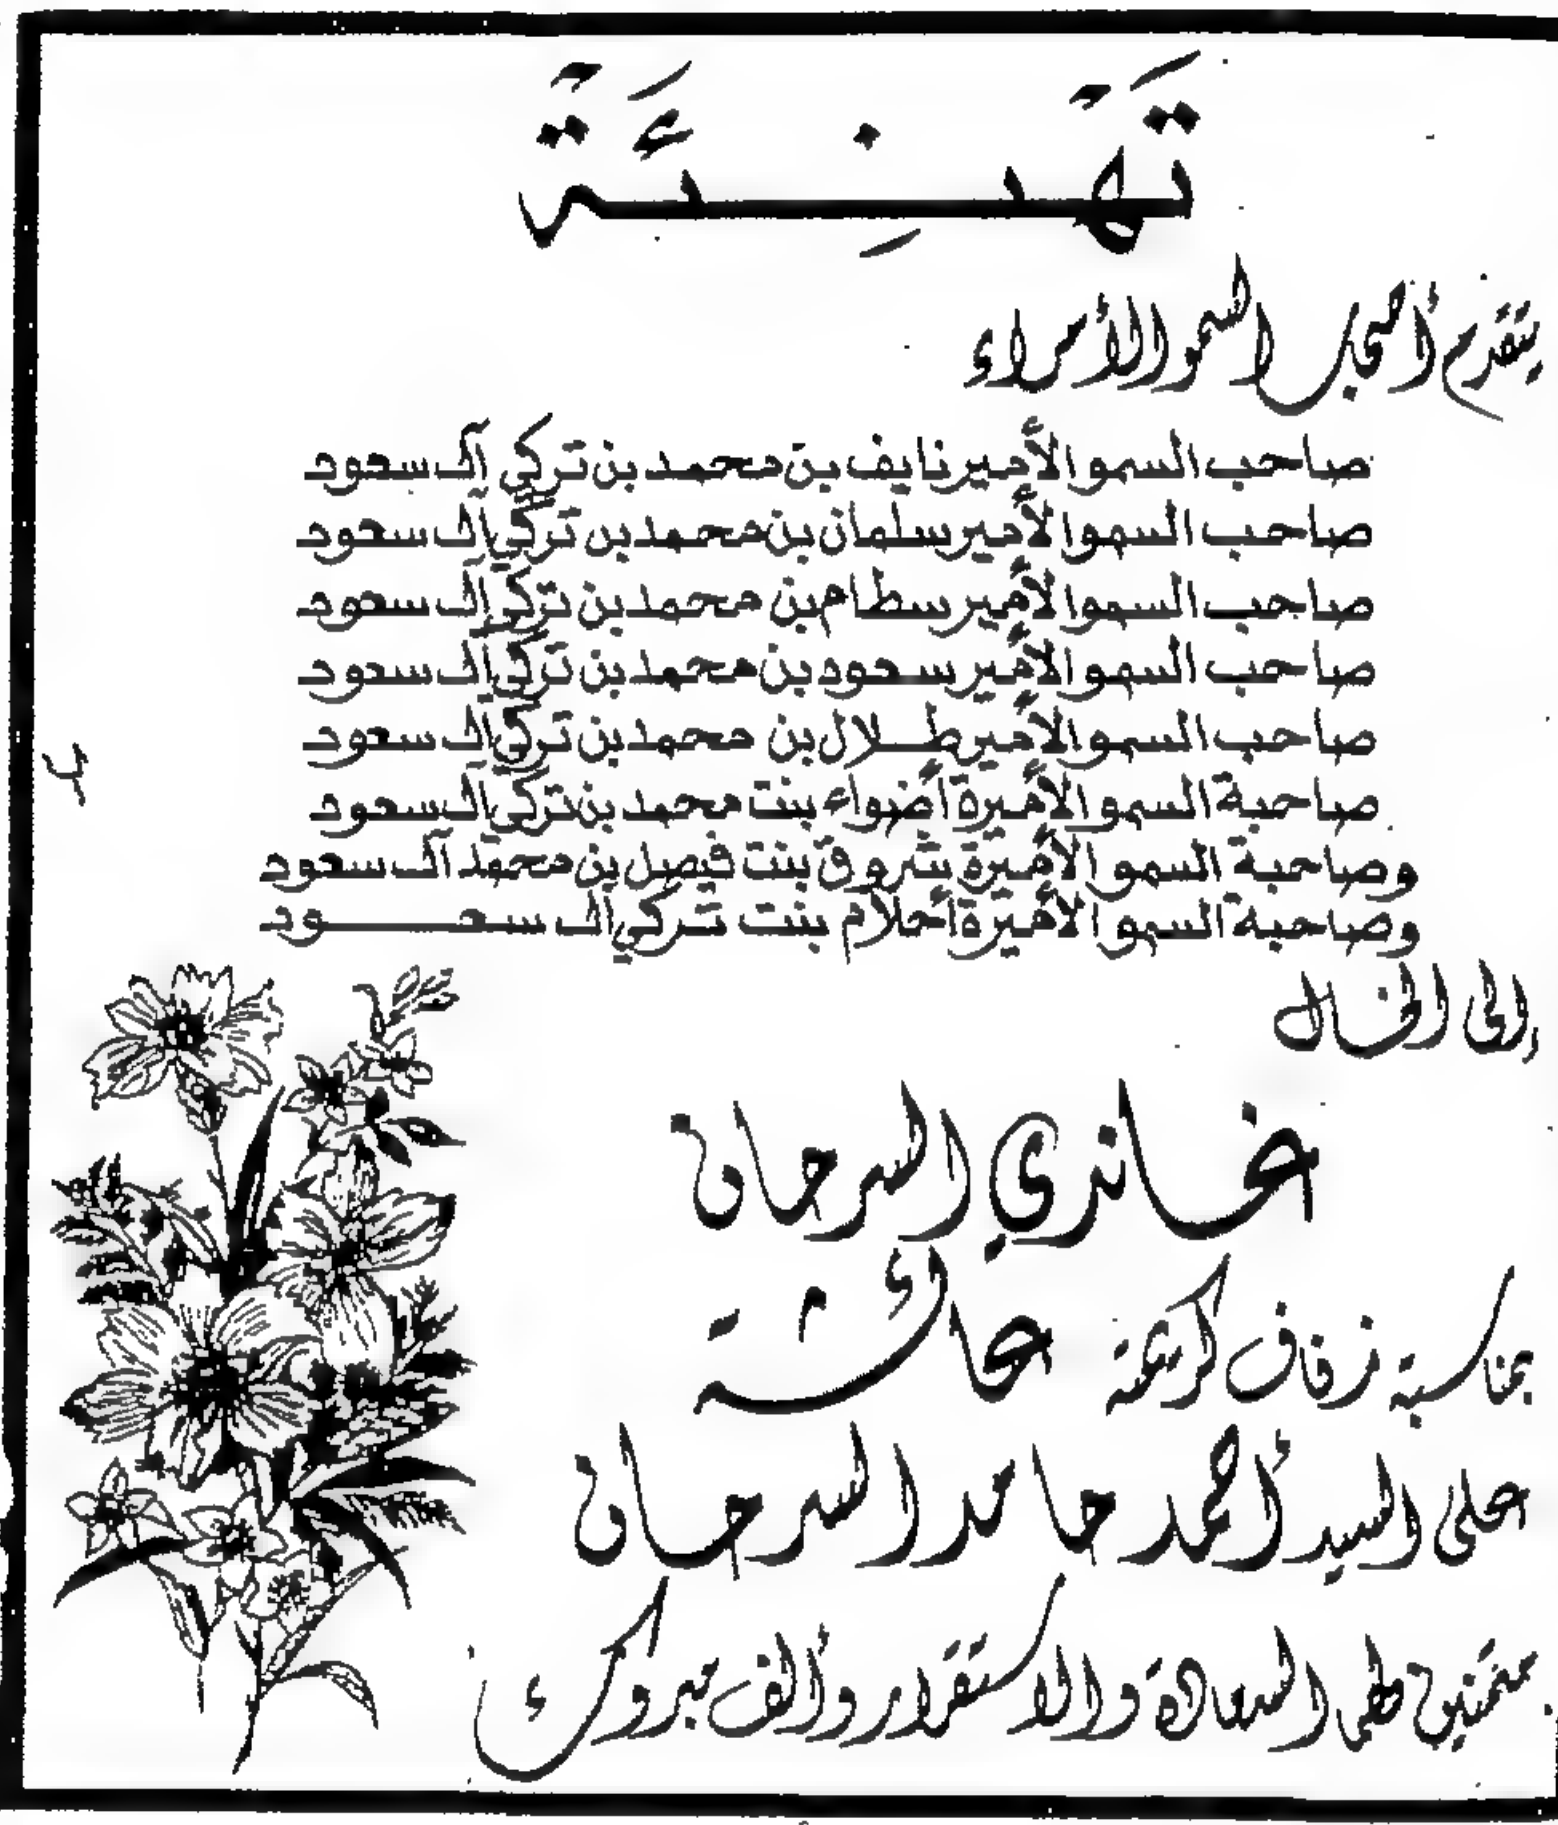 تَهْنِئَةً
يتقدم أصحاب السمو الأمراء
صاحب السمو الأمير نايف بن محمد بن تركي آل سعود
صاحب السمو الأمير سلمان بن محمد بن تركي آل سعود
صاحب السمو الأمير سطام بن محمد بن تركي آل سعود
صاحب السمو الأمير سعود بن محمد بن تركي آل سعود
صاحب السمو الأمير طلال بن محمد بن تركي آل سعود
صاحبة السمو الأميرة أضواء بنت محمد بن تركي آل سعود
وصاحبة السمو الأميرة شروق بنت فيصل بن محمد آل سعود
وصاحبة السمو الأميرة أحلام بنت تركي آل سعود
إلى الخال
غاندي السرحان
بمناسبة زفاف كريمته عائشة
على السيد أحمد حامد السرحان
متمنين لهما السعادة والاستقرار وألف مبروك